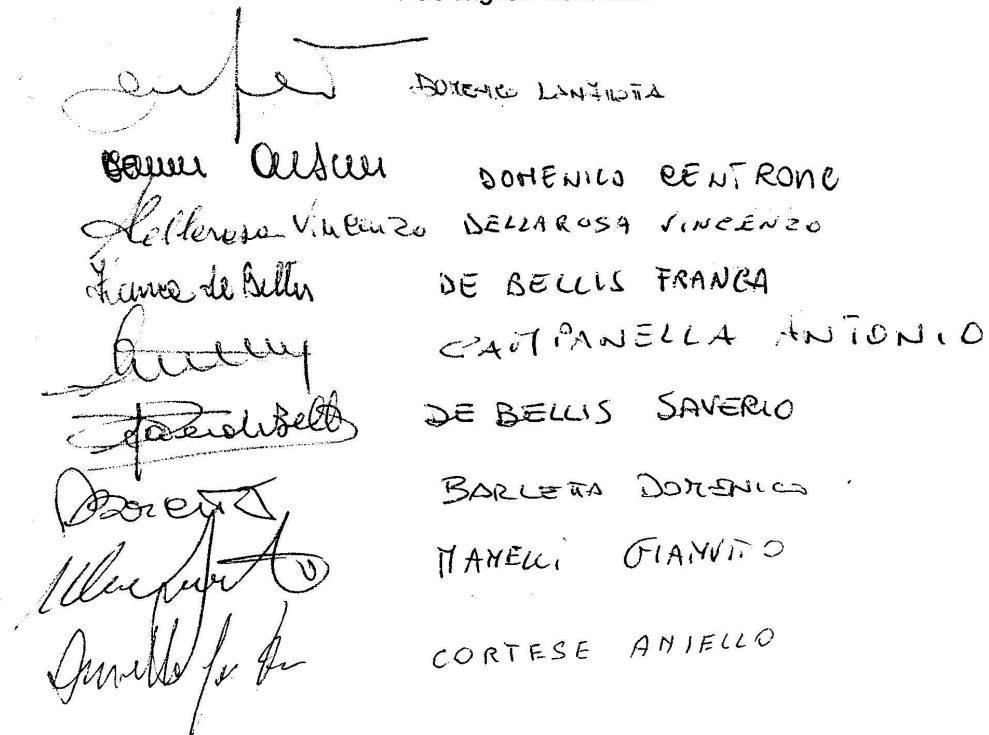 DOMENICO LANZILOTTA
DOMENICO CENTRONE
Dellarosa Vincenzo DELLAROSA VINCENZO
Franca de Bellis DE BELLIS FRANCA
CAMPANELLA ANTONIO
DE BELLIS SAVERIO
BARLETTA DOMENICO
MAMELLI GIANVITO
CORTESE ANIELLO